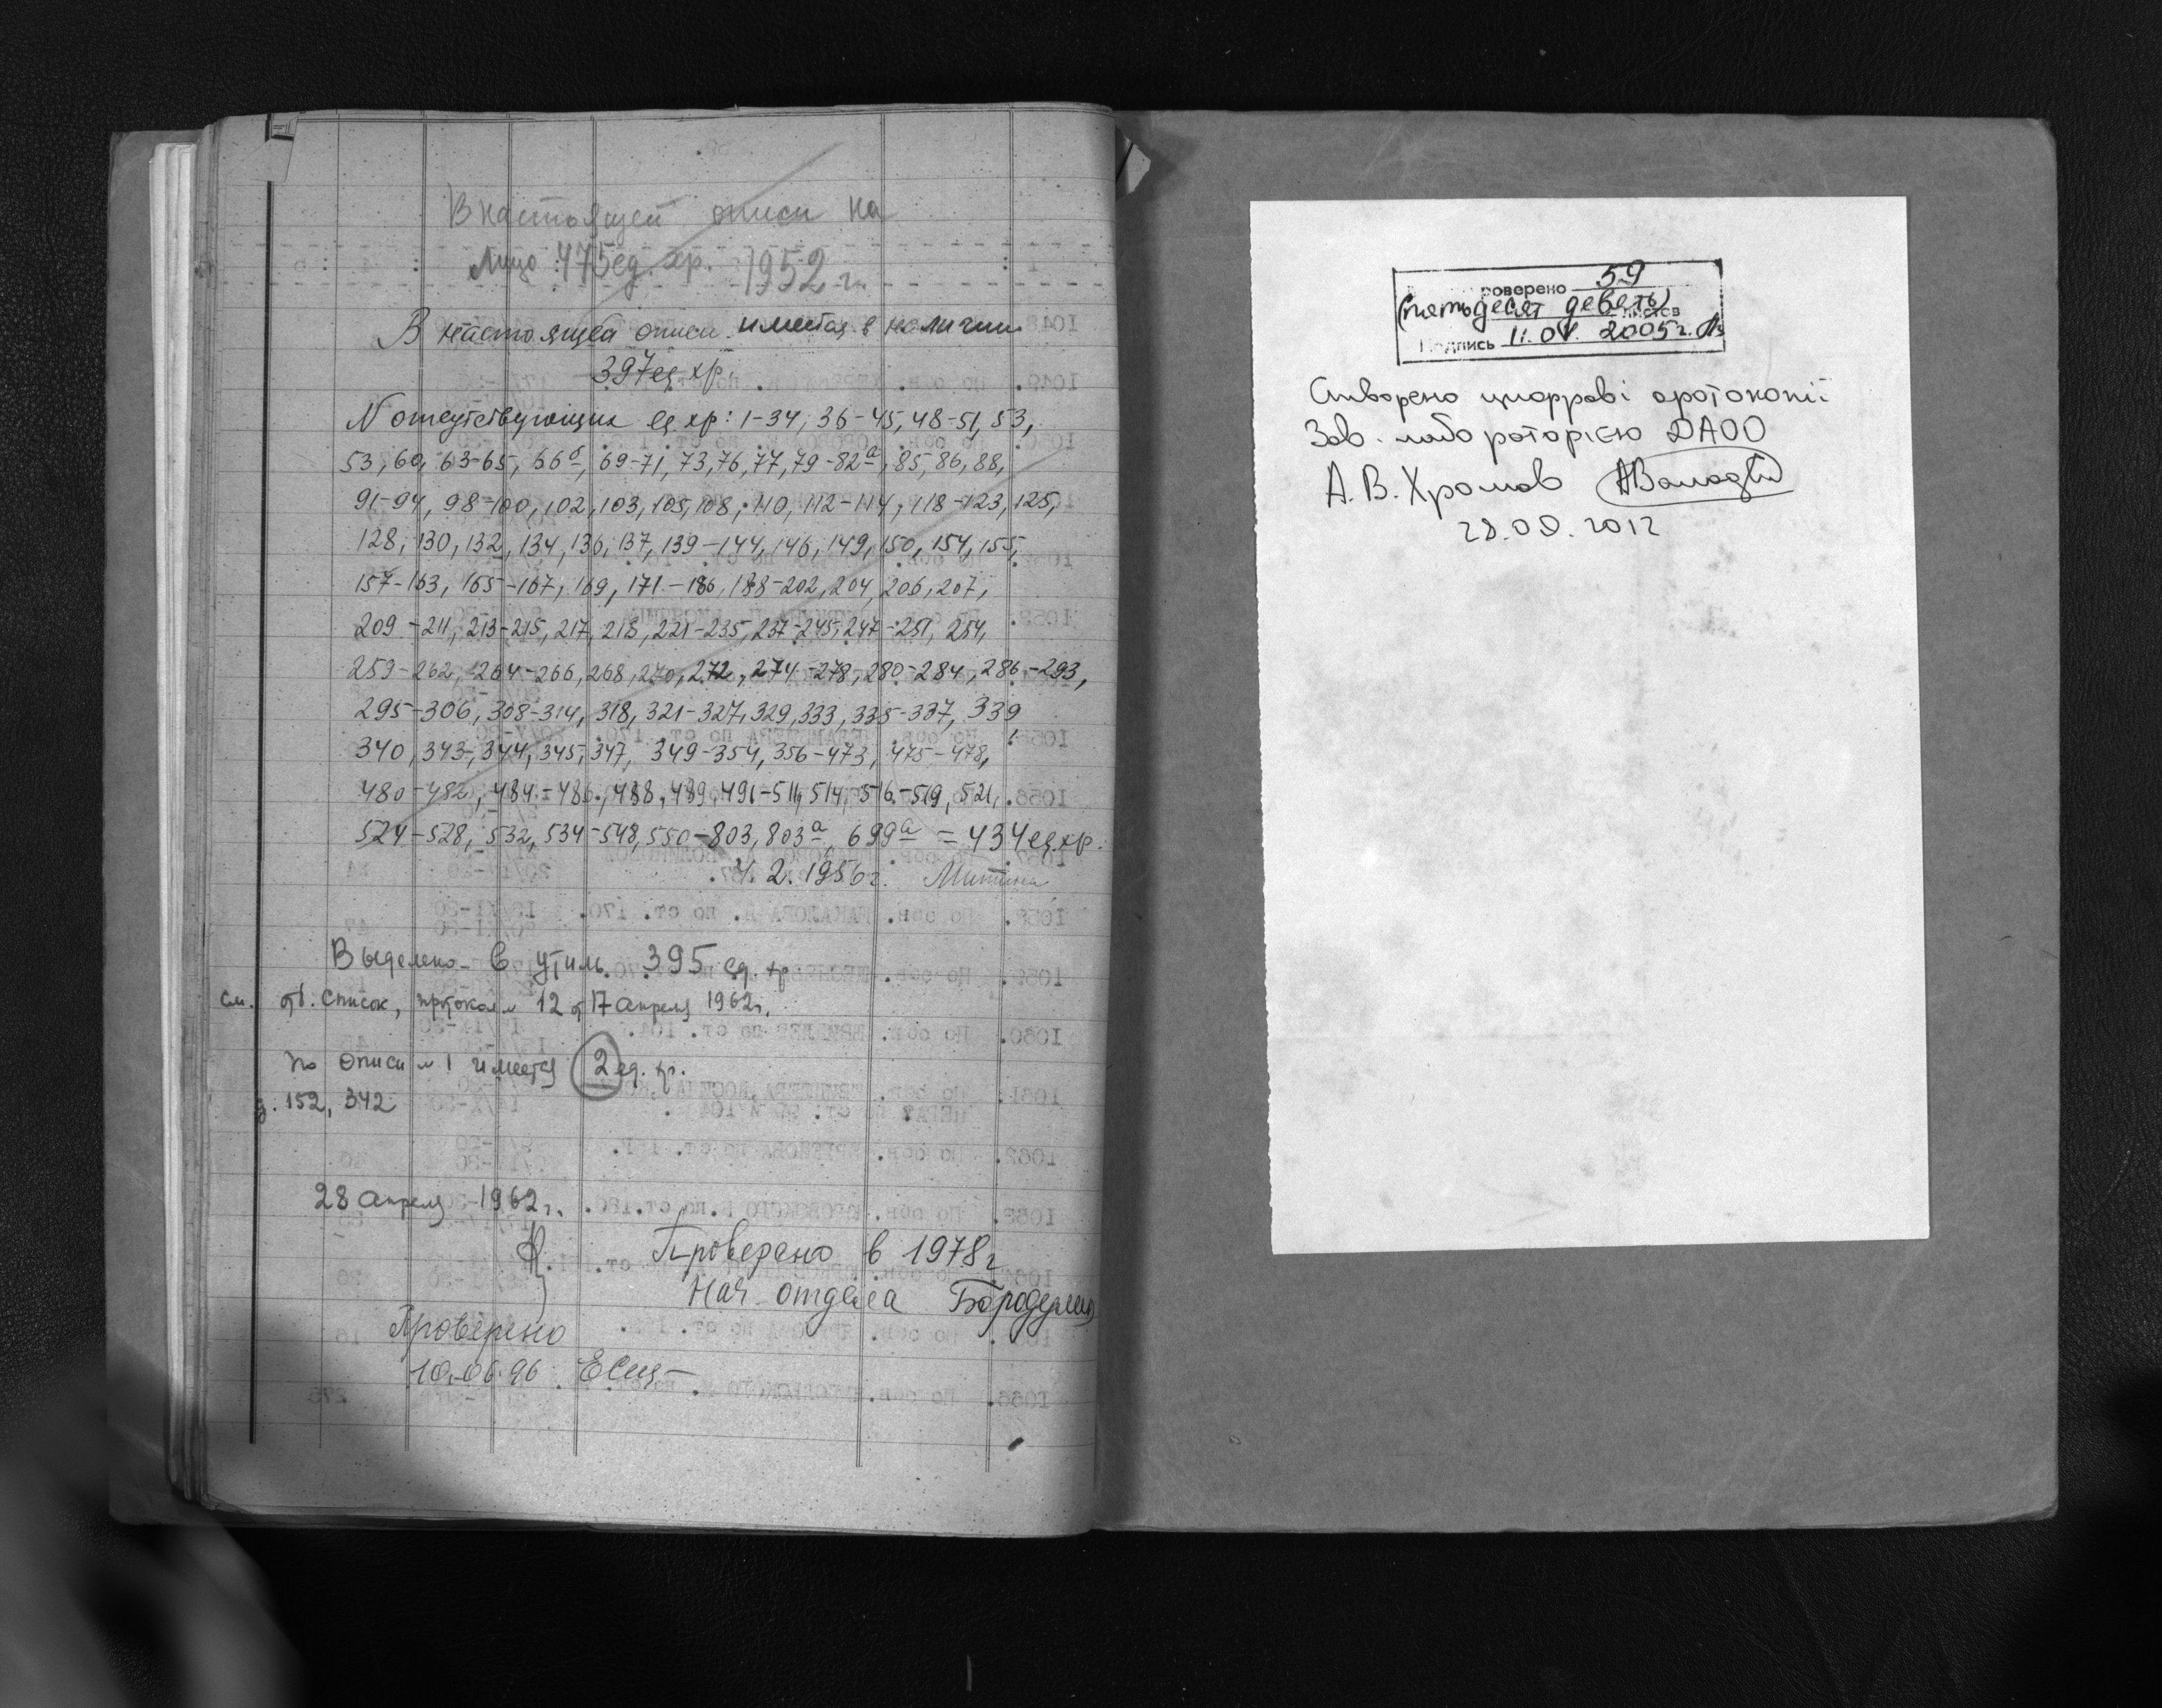 В настоящей описи на
лицо 475 ед. хр. 1952 г.
В настоящей описи имеется в наличии
397 ед. хр.
N отсутствующих ед хр: 1-34, 36-45, 48-51, 53,
53, 60, 63-65, 66б, 69-71, 73, 76, 77, 79-82а, 85, 86, 88,
91-94, 98-100, 102, 103, 105, 108, 110, 112-114, 118-123, 125,
128, 130, 132, 134, 136, 137, 139-144, 146, 149, 150, 154, 155,
157-163, 165-167, 169, 171-186, 188-202, 204, 206, 207,
209-211, 213-215, 217, 218, 221-235, 237-245, 247-251, 254,
259-262, 264-266, 268, 270, 272, 274-278, 280-284, 286-293,
295-306, 308-314, 318, 321-327, 329, 333, 335-337, 339
340, 343, 344, 345, 347, 349-354, 356-473, 475-478,
480-482, 484-486, 488, 489, 491-511, 514, 516-519, 521,
524-528, 532, 534-548, 550-803, 803а, 699а = 434 ед. хр.
4. 2. 1956 г. Митина
Выделено в утиль 395 ед. хр
см. от. список, проток. № 12 от 17 апреля 1962 г.
по описи № 1 имеется 2 ед. хр.
152, 342
28 апреля 1962 г.
Проверено в 1978 г
Нач. отдела
Проверено
10.06.96
роверено 59
(пятьдесят девять)
листов
Подпись 11.04. 2005 г.
Створено цифрові фотокопії
Зав. лабораторією ДАОО
А. В. Хромов
28.09.2012